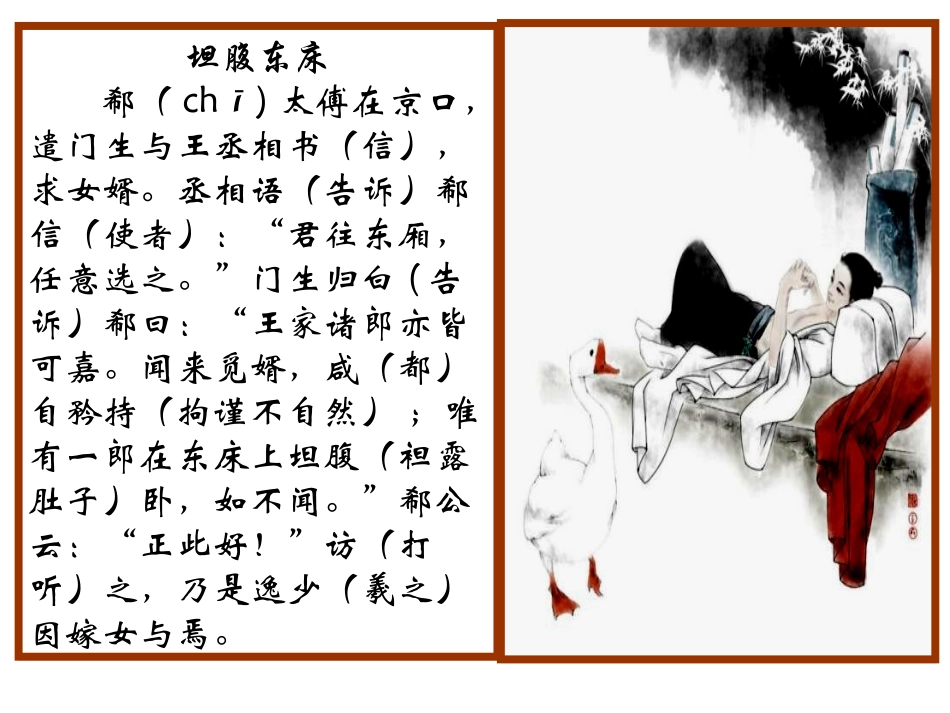 坦腹东床
郗（chī）太傅在京口，
遣门生与王丞相书（信），
求女婿。丞相语（告诉）郗
信（使者）：“君往东厢，
任意选之。”门生归白（告
诉）郗曰：“王家诸郎亦皆
可嘉。闻来觅婿，咸（都）
自矜持（拘谨不自然）；唯
有一郎在东床上坦腹（袒露
肚子）卧，如不闻。”郗公
云：“正此好！”访（打
听）之，乃是逸少（羲之）
因嫁女与焉。